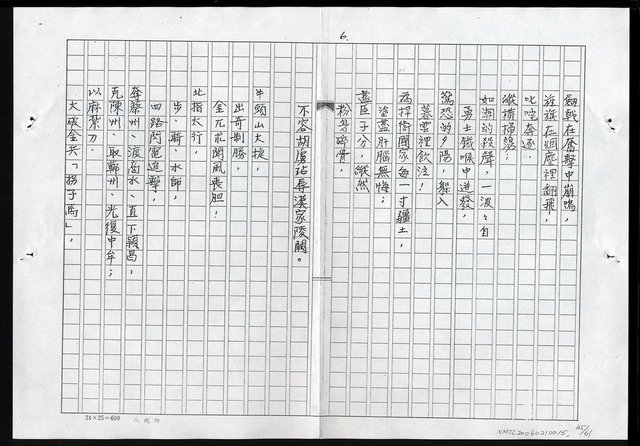 6.
劍戟在奮擊中崩鳴，
旌旗在烟塵裡翻飛！
叱咤奔逐，
縱橫掃蕩；
如潮的殺聲，一波々自
勇士鐵喉中迸發，
驚恐的夕陽，躲入
暮雲裡飲泣！
為捍衛國家每一寸疆土，
塗盡肝腦無悔；
盡臣子分，縱然
粉身碎骨，
不容胡虜玷辱漢家陵闕。
牛頭山大捷，
出奇制勝，
金兀朮聞風喪胆！
北指太行，
步、騎、水師，
四路閃電進擊，
奔蔡州、渡商水、直下潁昌，
克陳州、取鄭州、光復中牟；
以麻紮刀，
大破金兵「拐子馬」，
24×25=600
NMTL20060210015,
25/61